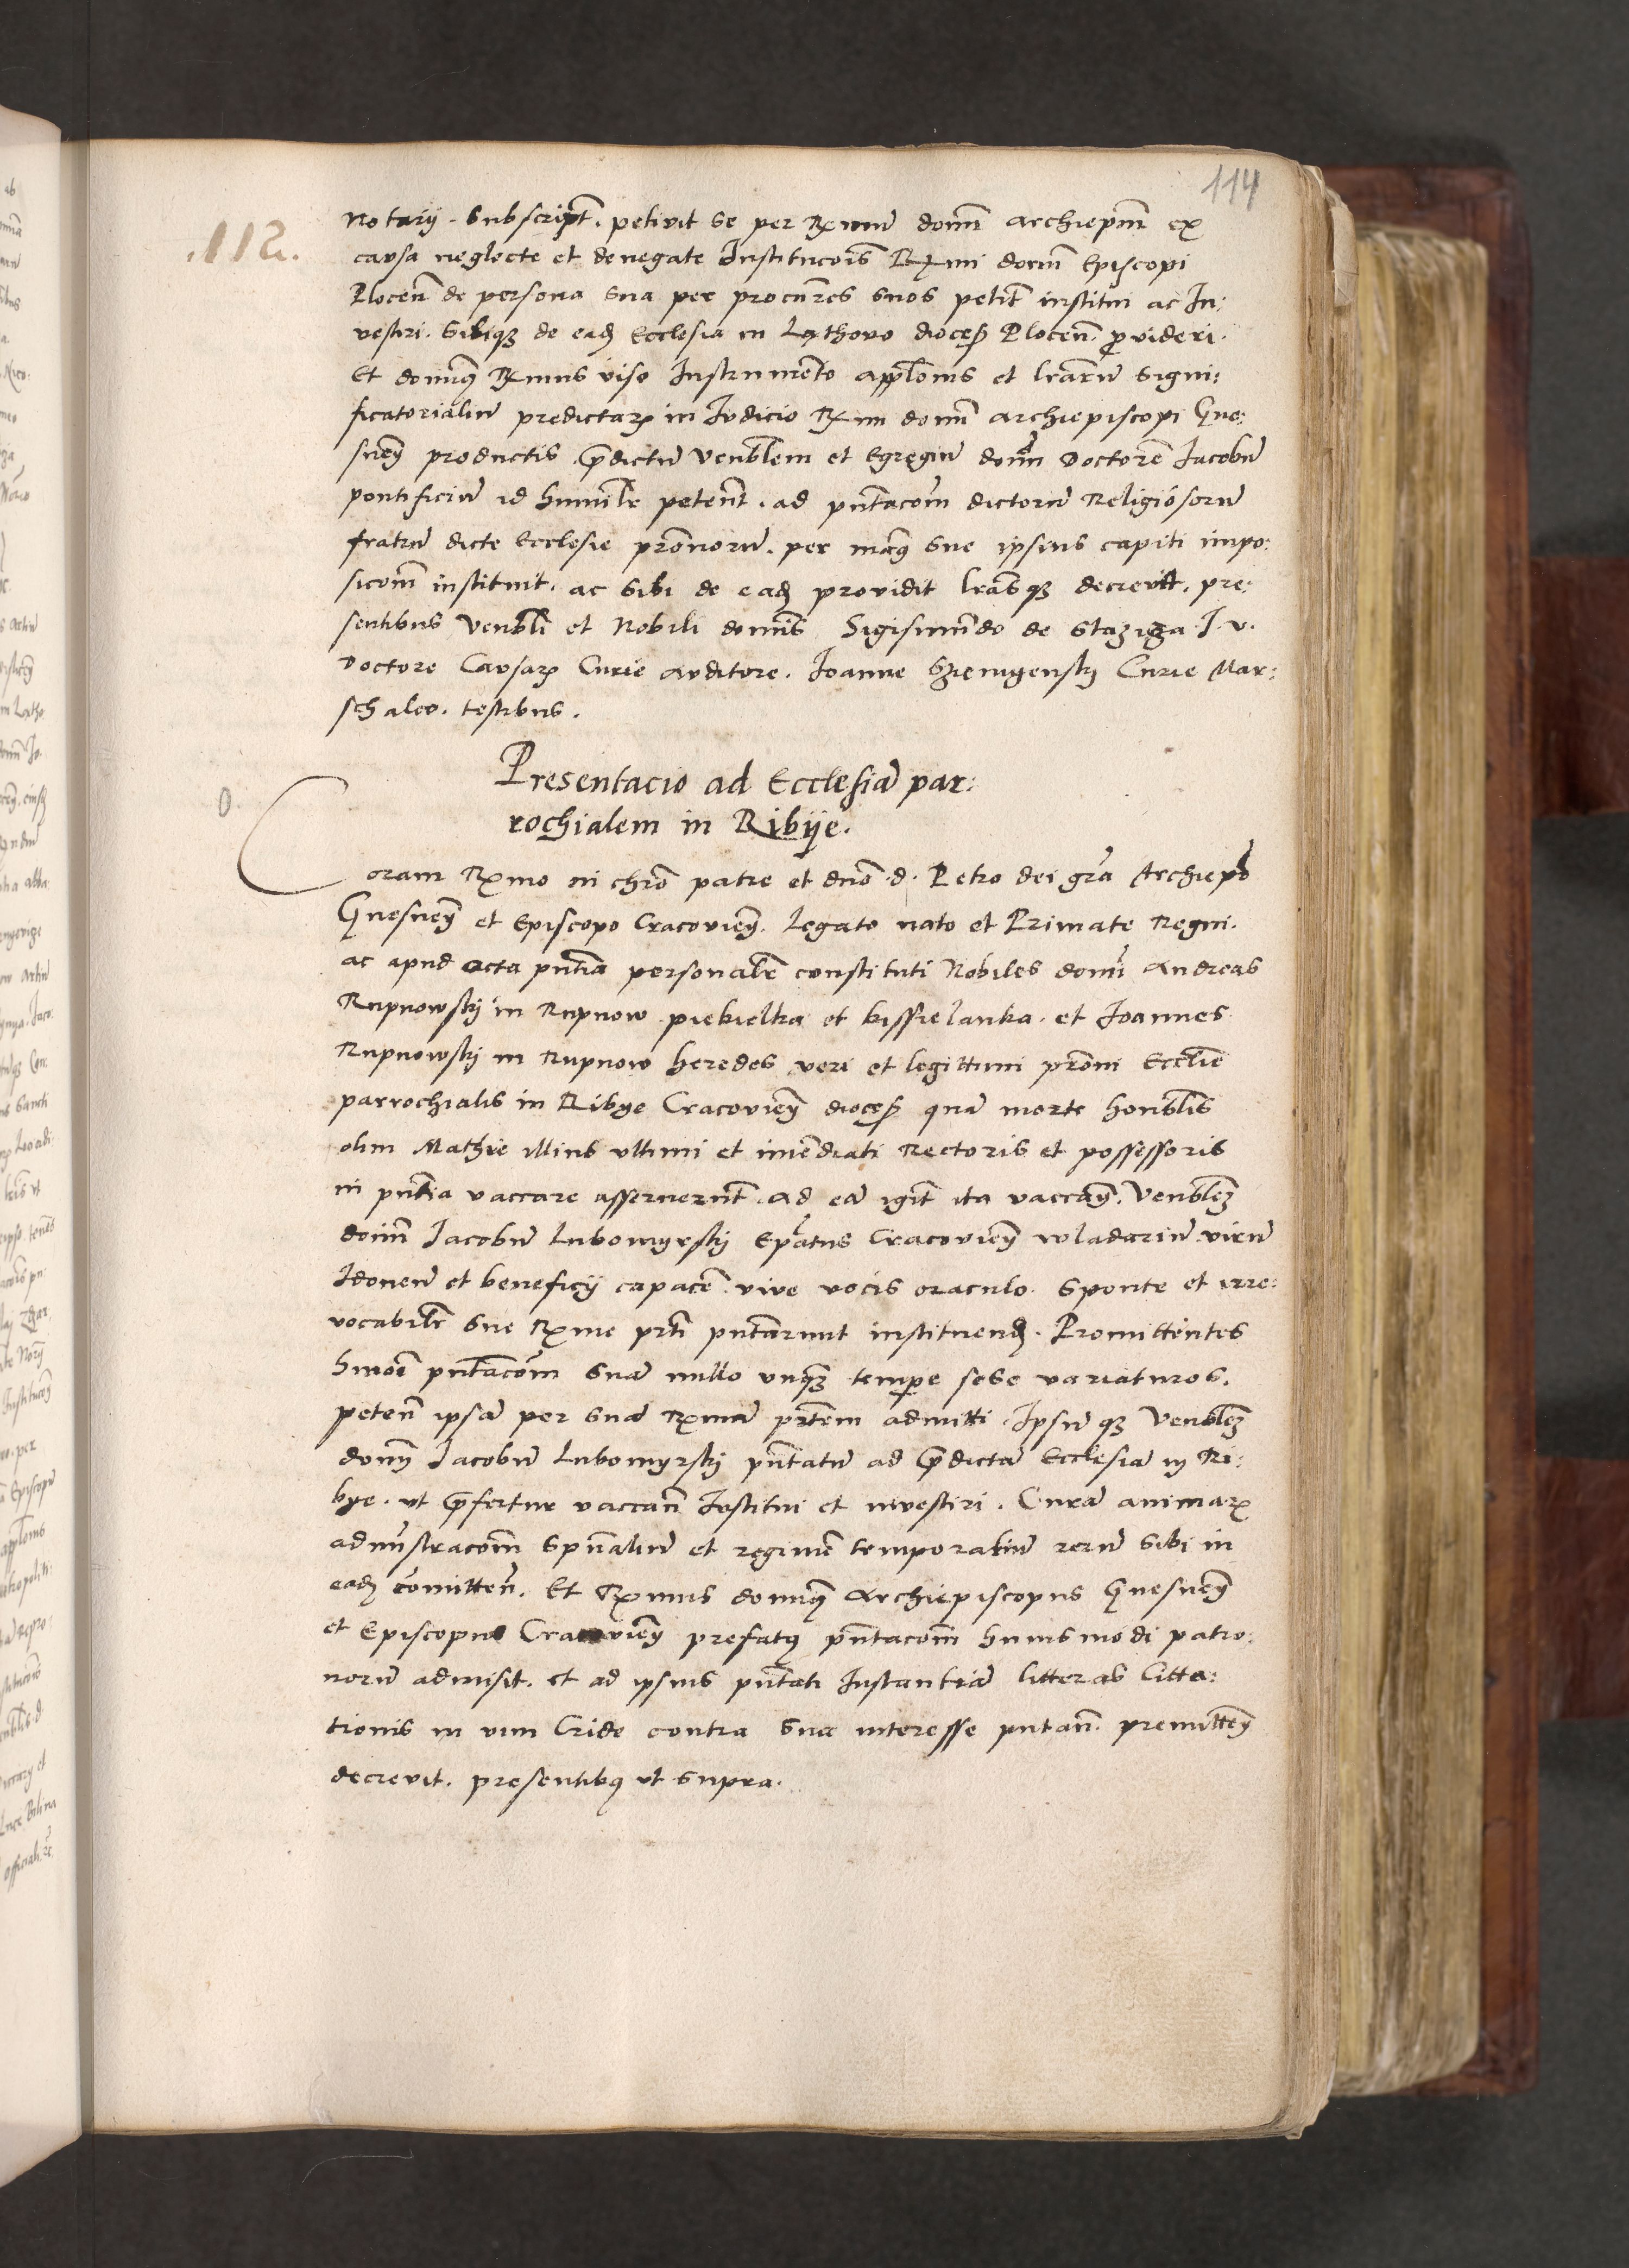 114
.112.
Notarij. Subscript. petivit se per Rx̄mū domī archiep̄m̄ ex
causa neglecte et denegate Institucōis Rx̄mi domī Episcopi
Plocen̄ de persona sua per procur̄es suos petīt institui ac In:
vestiri. Sibiqȝ de eadȝ Ecclesia in Lathovo dioces̄ Plocen̄. ꝓvideri.
Et domn̄qȝ Rx̄mus viso Instrumento app̄lloīs et lr̄arū signi:
ficatorialiū predictarȝ in Iudicio Rx̄mi domī archiepiscopi Gne:
snen̄ productis p̄dictū Venblēm et Egregiū dom̄ Doctorē Iacobū
pontificiū id humilr̄ petent̄. ad pn̄tacōm dictorū Religiosorū
fratrū dicte Ecclesie pr̄onorū. per man̄g sue ipsius capiti impo:
sicōm instituit. ac sibi de eadȝ providit lr̄asqȝ decrevit. pre:
sentibus Venbli et Nobili domīs Sigismundo de Stazıza I. v.
Doctore Causarȝ Curie auditore. Ioanne Szemgenskӱ Curie Mar:
schalco. testibus.
Presentacio ad Ecclesiā par:
rochialem in Ribÿe.
O.
Coram Rx̄mo in chr̄o patre et dn̄o .d. Petro dei gr̄a Archiepō
Gnesnen̄ et Episcopo Cracovien̄. Legato nato et Primate Regni.
ac apud acta pn̄tia personalr̄ constituti Nobiles domī Andreas
Rupnowskÿ in Rupnow piekielka et kissielanka. et Ioannes
Rupnowskÿ in Rupnow heredes veri et legittimi pr̄oni Eccl̄ie
parrochialis in Ribye Cracovien̄ dioces̄ quā morte honbl̄is
olim Mathie illius ultimi et imēdiati Rectoris et possessoris
in pn̄tia vaccare asseruerūt. ad eā igīt ita vaccan̄. Venblēȝ
domī Iacobū Lubomyrskÿ Ep̄atus Cracovien̄ wladariū virū
Idoneū et beneficij capacē vive vocis oraculo sponte et irre:
vocabilr̄ Sue Rx̄me pr̄ti pn̄tarunt instituendȝ. Promittentes
hmōi pn̄tacōm suā nullo unqȝ tempē sese variaturos.
peten̄ ipsā per suā Rx̄mā pr̄tem admitti. Ipsūqȝ Venblēȝ
dom̄ Iacobū Lubomyrskÿ pn̄tatū ad p̄dictā Ecclesiā in Ri:
bye. ut p̄fertur vaccan̄ Institui et investiri. Curā animarȝ
admīstracōm spūaliū et regimē temporaliū rerū sibi in
eadȝ cōmitten̄. Et Rx̄mus domn̄qȝ Archiepiscopus Gnesnen̄
et Episcopus Cracovien̄ prefatꝰ pn̄tacōm huiusmodi patro:
norū admisit. et ad ipsius pn̄tati Instantiā litteras Citta:
tionis in vim Cride contra sua interesse putan̄. premitten̄
decrevit. presentibꝰ ut supra.